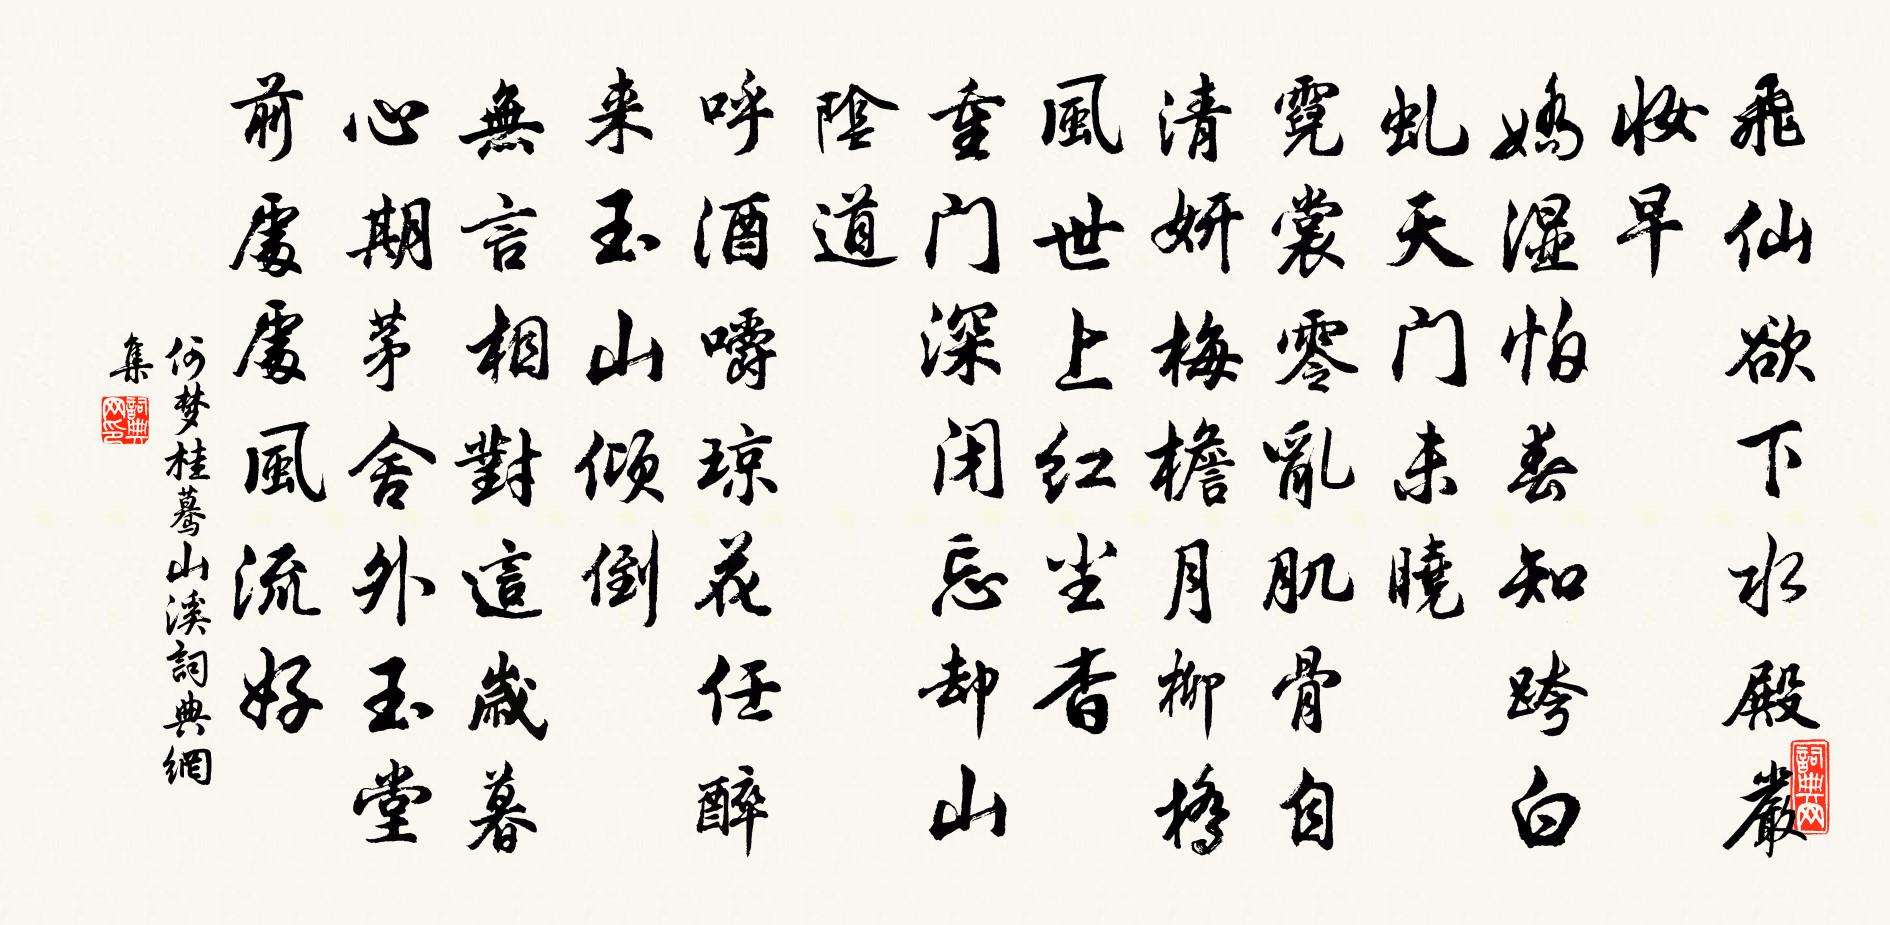 飛仙欲下水殿嚴
妝早
嬌濕怕春知跨白
虬天門未曉
霓裳零亂肌骨自
清妍梅檐月柳橋
風世上红尘香
重门深闭忘却山
陰道
呼酒嚼琼花任醉
来玉山倾倒
無言相對這歲暮
心期茅舍外玉堂
前處處風流好
何梦桂蓦山溪詞典網
集
詞典网
詞典网印